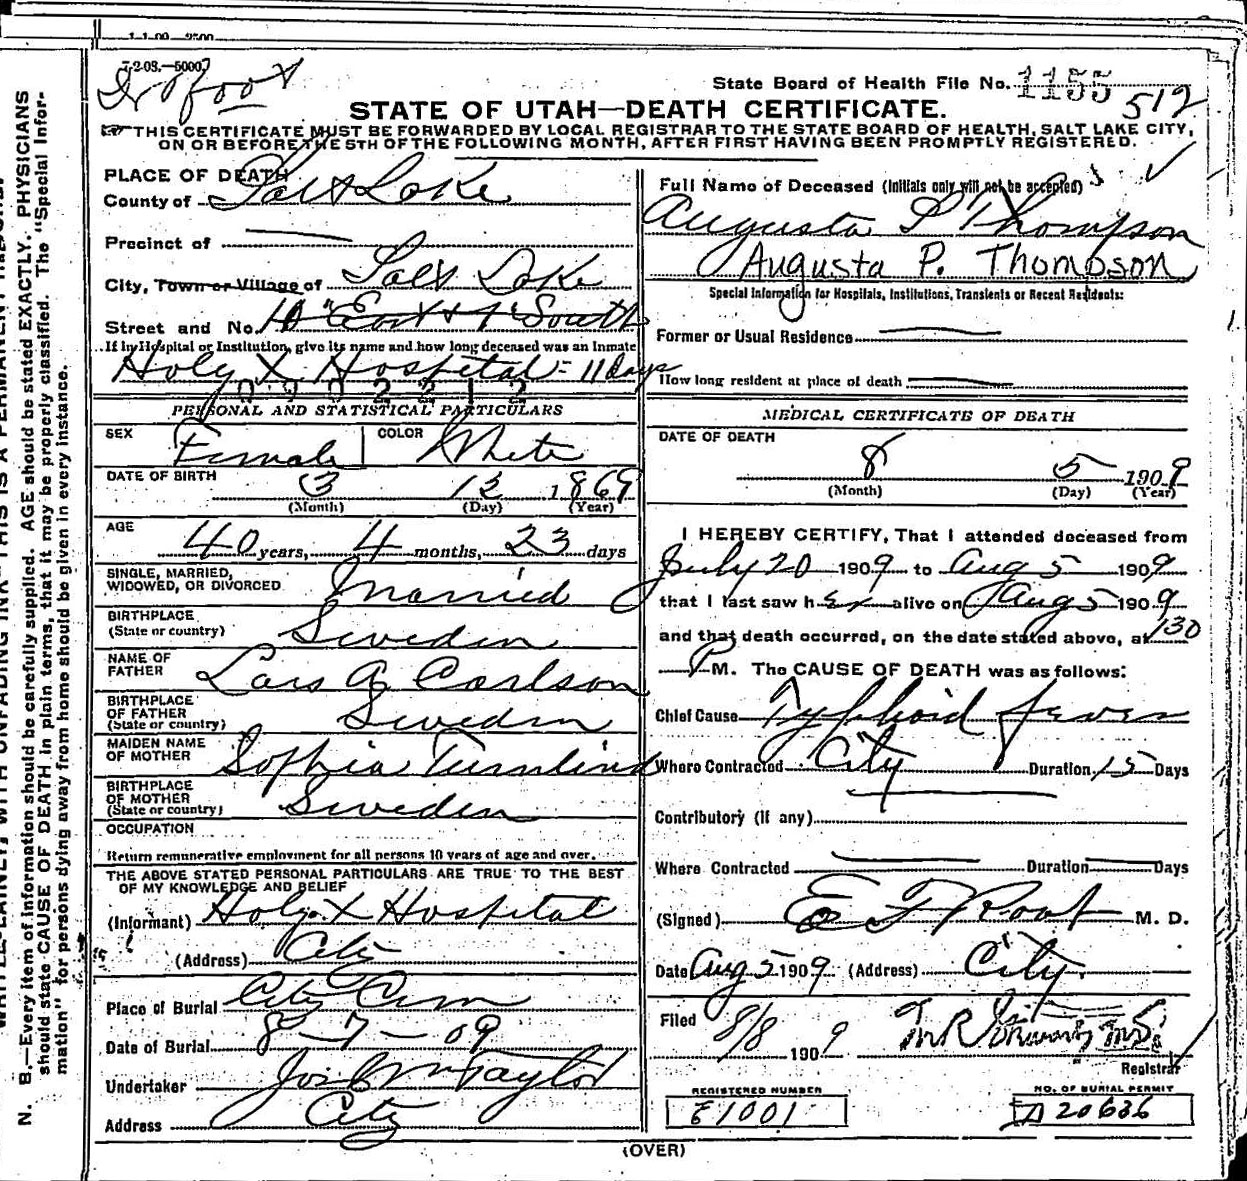 1-1-09—2500
7-2-08.—5000.
State Board of Health File No. 1155 512
STATE OF UTAH—DEATH CERTIFICATE.
THIS CERTIFICATE MUST BE FORWARDED BY LOCAL REGISTRAR TO THE STATE BOARD OF HEALTH, SALT LAKE CITY,
ON OR BEFORE THE 5TH OF THE FOLLOWING MONTH, AFTER FIRST HAVING BEEN PROMPTLY REGISTERED.
PLACE OF DEATH
County of Salt Lake
Precinct of
City, Town or Village of Salt Lake
Street and No. 10 East & 1 South
If in Hospital or Institution, give its name and how long deceased was an inmate
Holy X Hospital = 11 days
0902212
PERSONAL AND STATISTICAL PARTICULARS
SEX Female COLOR White
DATE OF BIRTH 3 13 1869
(Month) (Day) (Year)
AGE
40 years, 4 months, 23 days
SINGLE, MARRIED,
WIDOWED, OR DIVORCED Married
BIRTHPLACE
(State or country) Sweden
NAME OF
FATHER Lars A Carlson
BIRTHPLACE
OF FATHER
(State or country) Sweden
MAIDEN NAME
OF MOTHER Sophia
BIRTHPLACE
OF MOTHER
(State or country) Sweden
OCCUPATION
Return remunerative employment for all persons 10 years of age and over.
THE ABOVE STATED PERSONAL PARTICULARS ARE TRUE TO THE BEST
OF MY KNOWLEDGE AND BELIEF
(Informant) Holy X Hospital
(Address) City
Place of Burial City Cem
Date of Burial 8-7-09
Undertaker Jos Wm Taylor
Address City
Full Name of Deceased (Initials only will not be accepted)
Augusta P Thompson
Augusta P. Thompson
Special Information for Hospitals, Institutions, Transients or Recent Residents:
Former or Usual Residence
How long resident at place of death
MEDICAL CERTIFICATE OF DEATH
DATE OF DEATH
8 5 1909
(Month) (Day) (Year)
I HEREBY CERTIFY, That I attended deceased from
July 20 1909 to Aug 5 1909
that I last saw her alive on Aug 5 1909
and that death occurred, on the date stated above, at 130
P M. The CAUSE OF DEATH was as follows:
Chief Cause Typhoid fever
Where Contracted City Duration 15 Days
Contributory (if any)
Where Contracted Duration Days
(Signed) E F Root M. D.
Date Aug 5 1909 (Address) City.
Filed 8/8 1909
Registrar
REGISTERED NUMBER
E1001
NO. OF BURIAL PERMIT
A 20636
(OVER)
N. B.—Every item of information should be carefully supplied. AGE should be stated EXACTLY. PHYSICIANS
should state CAUSE OF DEATH in plain terms, that it may be properly classified. The "Special Infor-
mation" for persons dying away from home should be given in every instance.